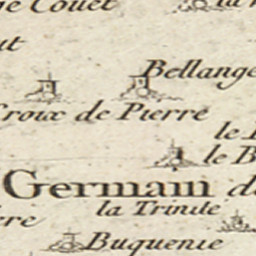 Couet
ut
Bellange
Croix de Pierre
le
le B
Germain de
la Trinite
Buquenie